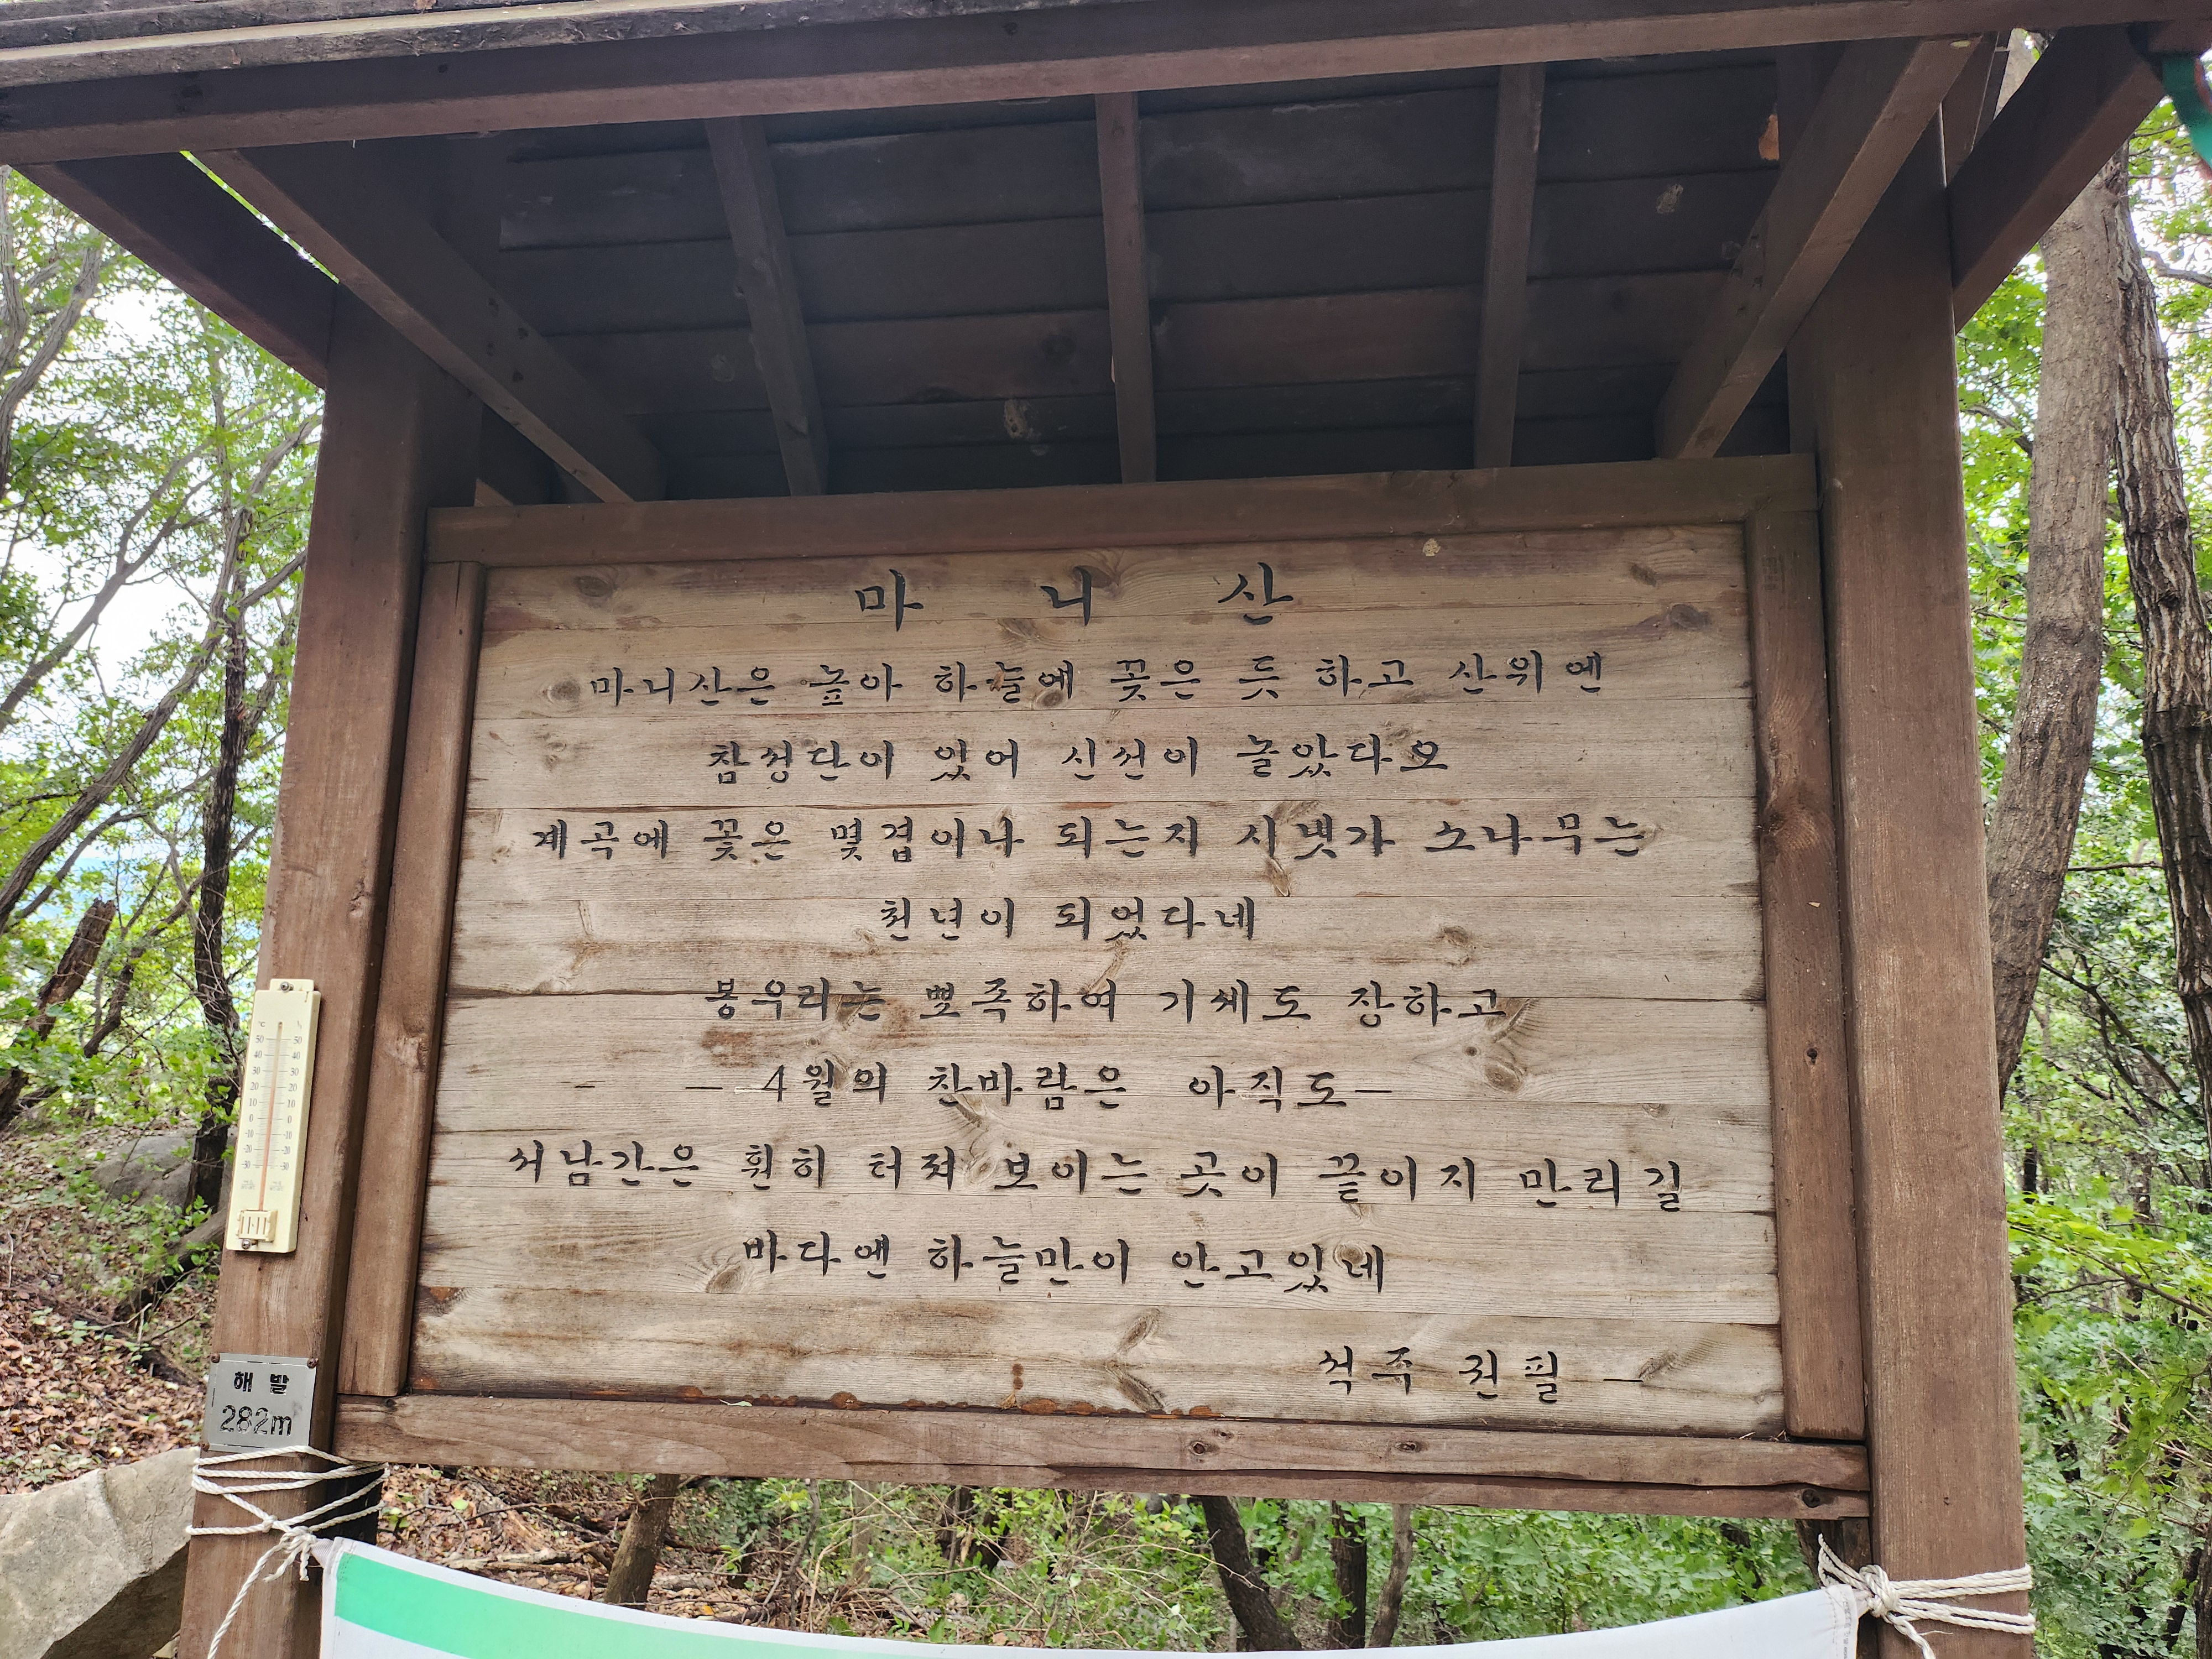 마 니 산
마니산은 높아 하늘에 꽂은 듯 하고 산위엔
참성단이 있어 신선이 놀았다오
계곡에 꽃은 몇겹이나 되는지 시냇가 소나무는
천년이 되었다네
봉우리는 뾰족하여 기세도 장하고
- - 4월의 찬바람은 아직도-
서남간은 훤히 터져 보이는 곳이 끝이지 만리길
바다엔 하늘만이 안고있네
석주 권필 -
℃ ℃
50 50
40 40
30 30
20 20
10 10
0 0
-10 -10
-20 -20
-30 -30
해 발
282m